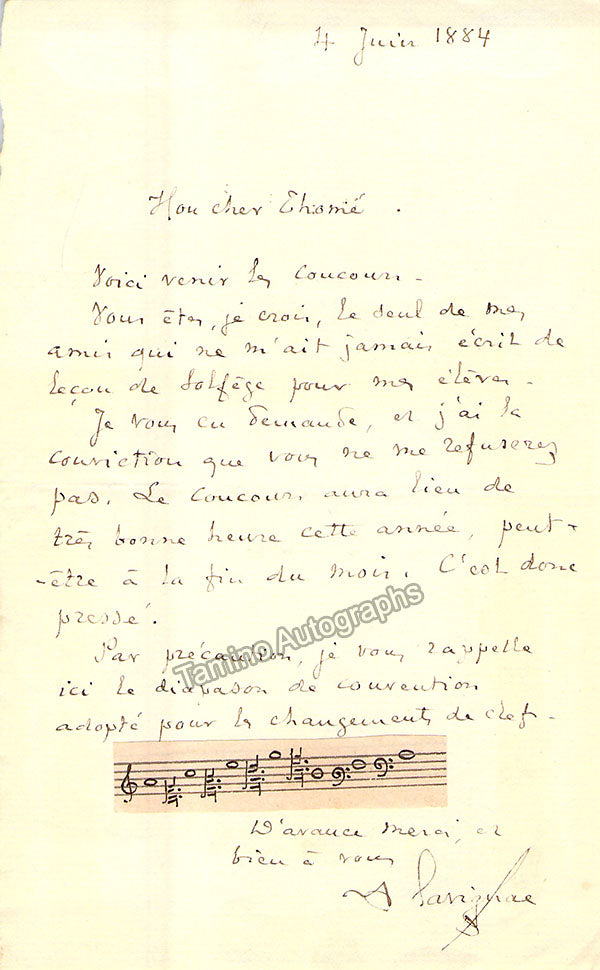 4 Juin 1884
Mon cher Thomé.
Voici venir les concours.
Vous êtes, je crois, le seul de mes
amis qui ne m'ait jamais écrit de
leçon de Solfège pour mes élèves.
Je vous en demande, et j'ai la
conviction que vous ne me refuserez
pas. Le concours aura lieu de
très bonne heure cette année, peut-
-être à la fin du mois. C'est donc
pressé.
Par précaution, je vous rappelle
ici le diapason de convention
adopté pour les changements de clef.
D'avance merci, et
bien à vous
A Lavignac
Tamino Autographs